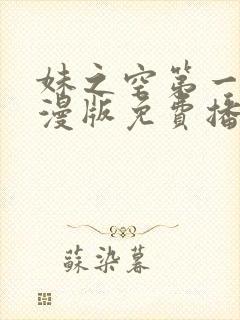 妹之空第一
漫版免費播
蘇染暮